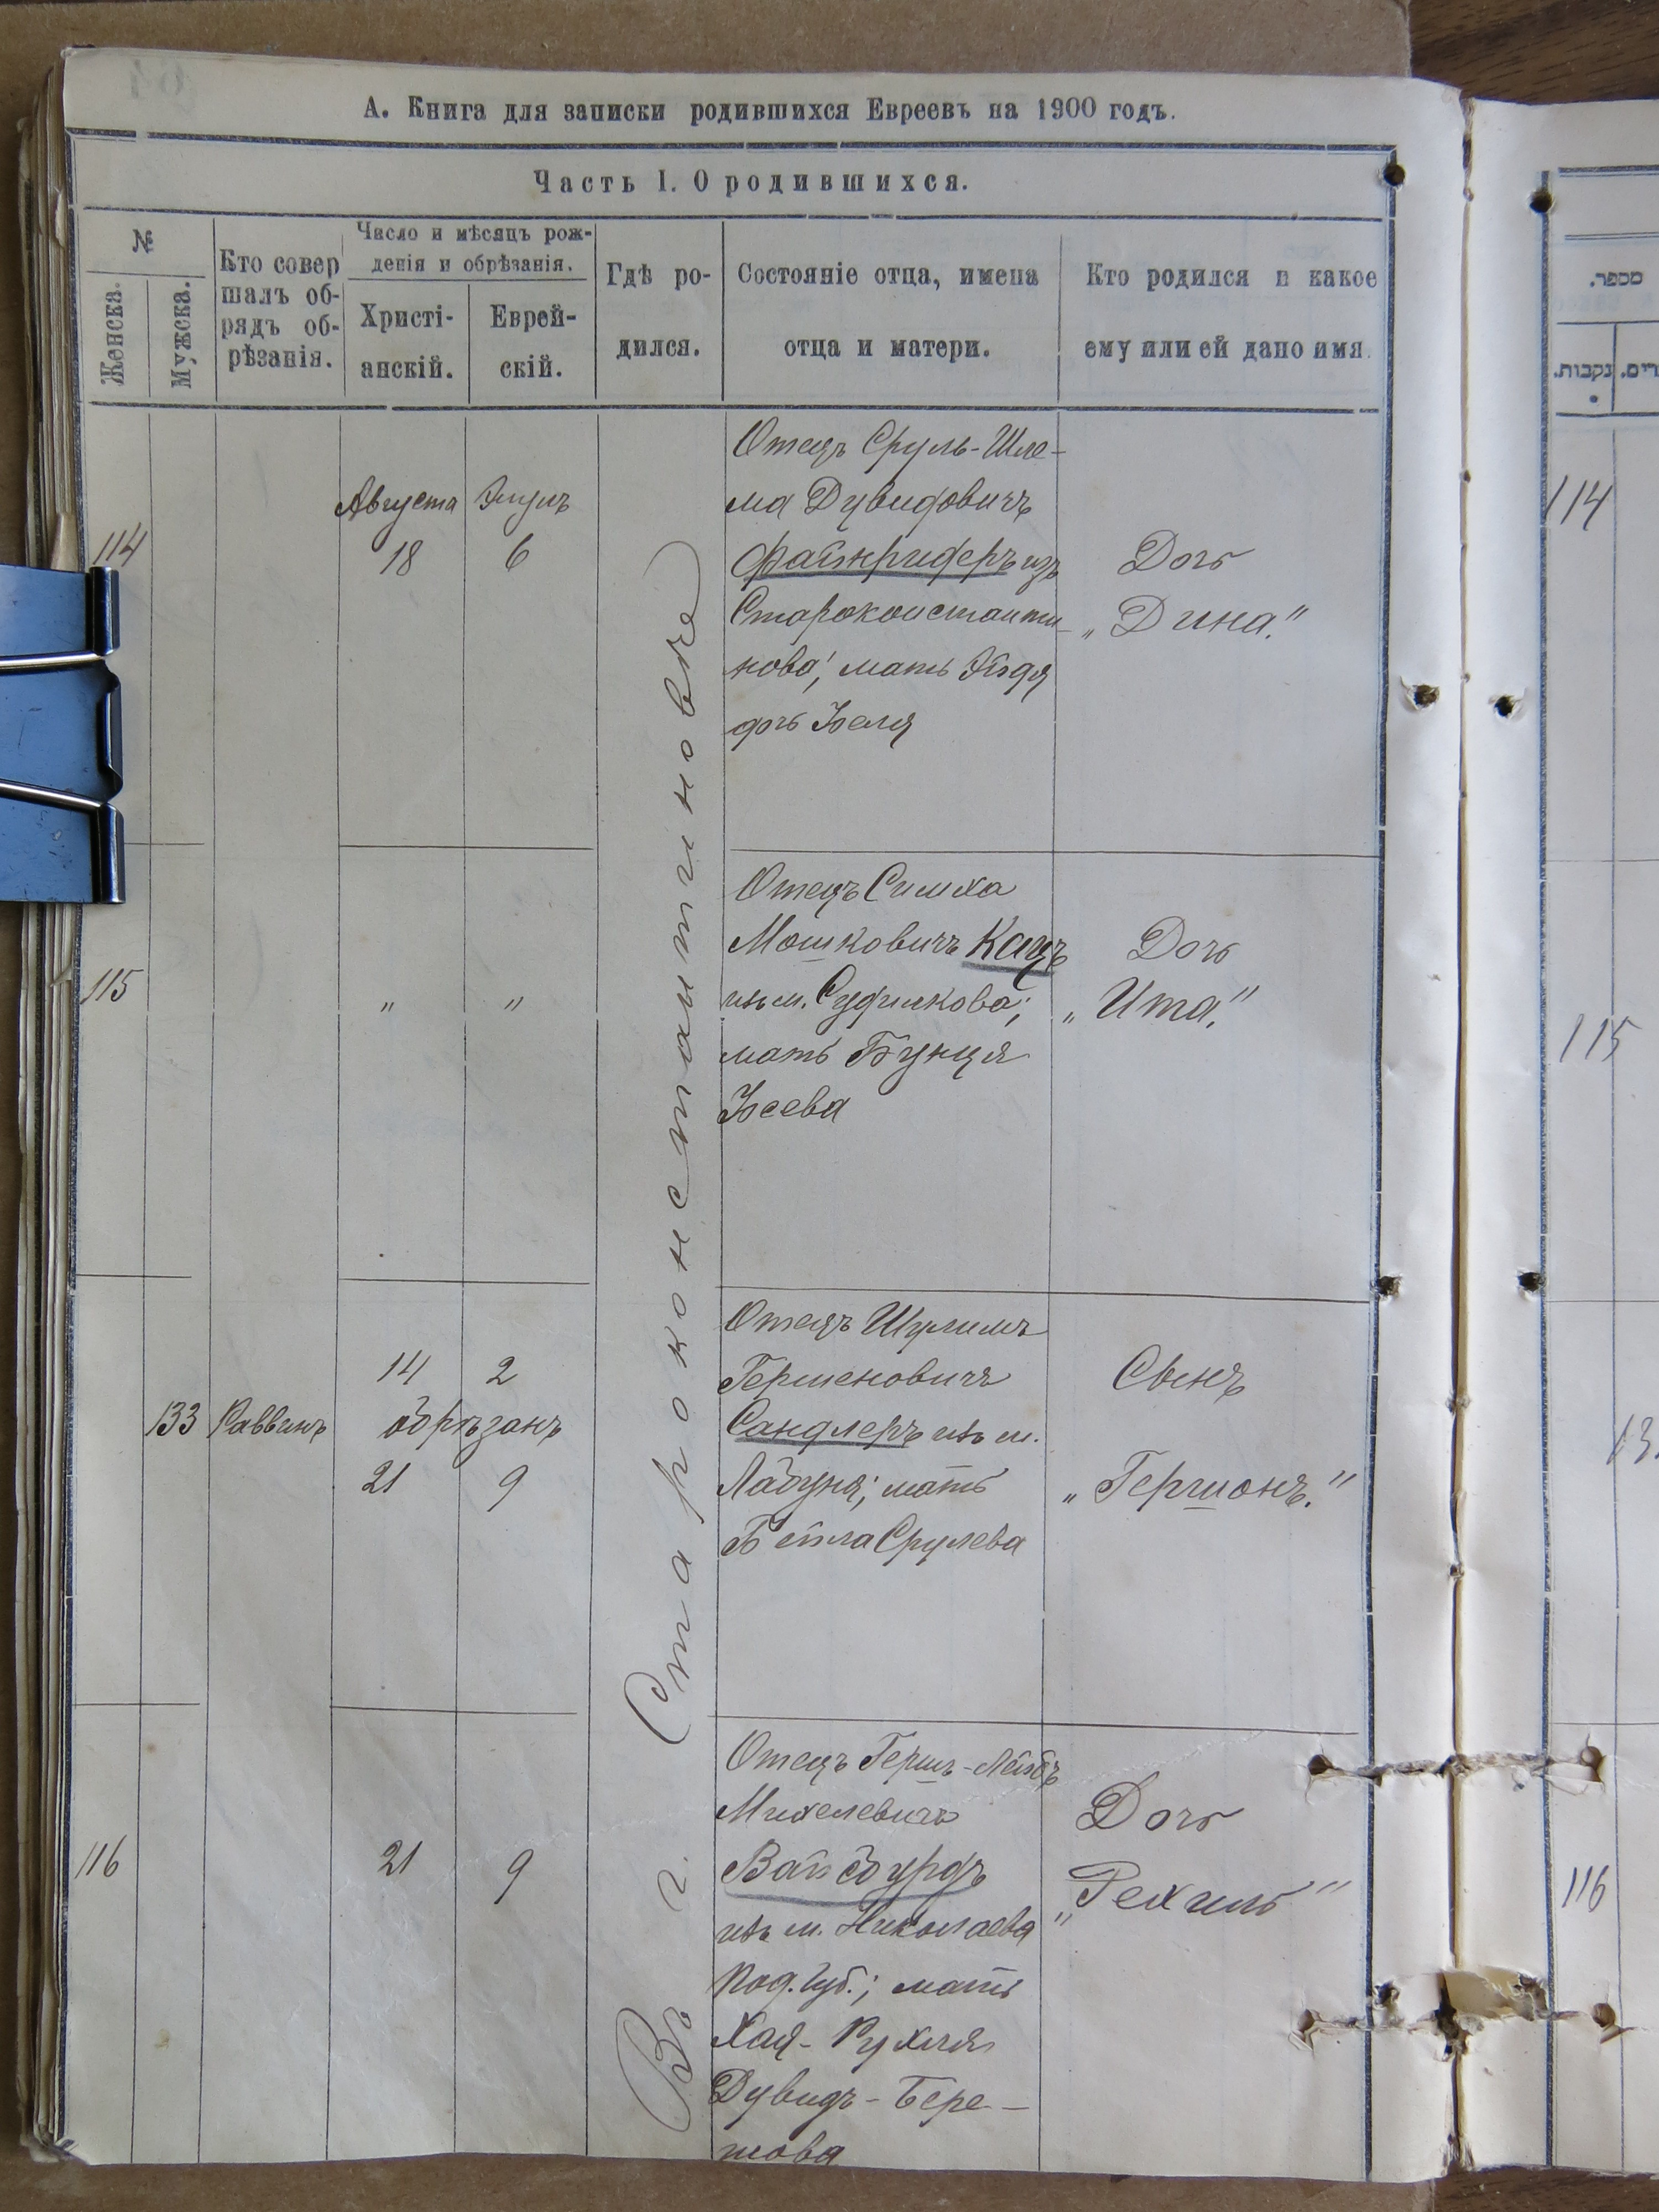 А. Книга для записки родившихся Евреевъ на 1900 годъ.
Часть I. О родившихся.
№
Женска.
Мужска.
Кто совер
шалъ об-
рядъ об-
рѣзанія.
Число и мѣсяцъ рож-
денія и обрѣзанія.
Христі-
анскій.
Еврей-
скій.
Гдѣ ро-
дился.
Состояніе отца, имена
отца и матери.
Кто родился и какое
ему или ей дано имя.
מספר.
נקבות.
Въ г. Староконстантиновѣ
114
Августа
18
Элулъ
6
Отецъ Сруль-Шле-
ма Дувидовичъ
Файнридеръ изъ
Староконстанти-
нова; мать Эйдя
дочь Іоеля
Дочь
„Дина."
114
115
"
"
Отецъ Симха
Мошковичъ Кацъ
изъ м. Судилкова;
мать Бунця
Іосева
Дочь
„Ита."
115
133
Раввинъ
14
2
обрѣзанъ
21
9
Отецъ Шулимъ
Гершеновичъ
Сандлеръ изъ м.
Лабуня; мать
Бейла Срулева
Сынъ
„Гершонъ."
116
21
9
Отецъ Гершъ-Лейбъ
Михелевичъ
Вайсбурдъ
изъ м. Николаева
Под. Губ.; мать
Хая-Рухля
Дувидъ-Бере-
кова
Дочь
„Рехиль"
116